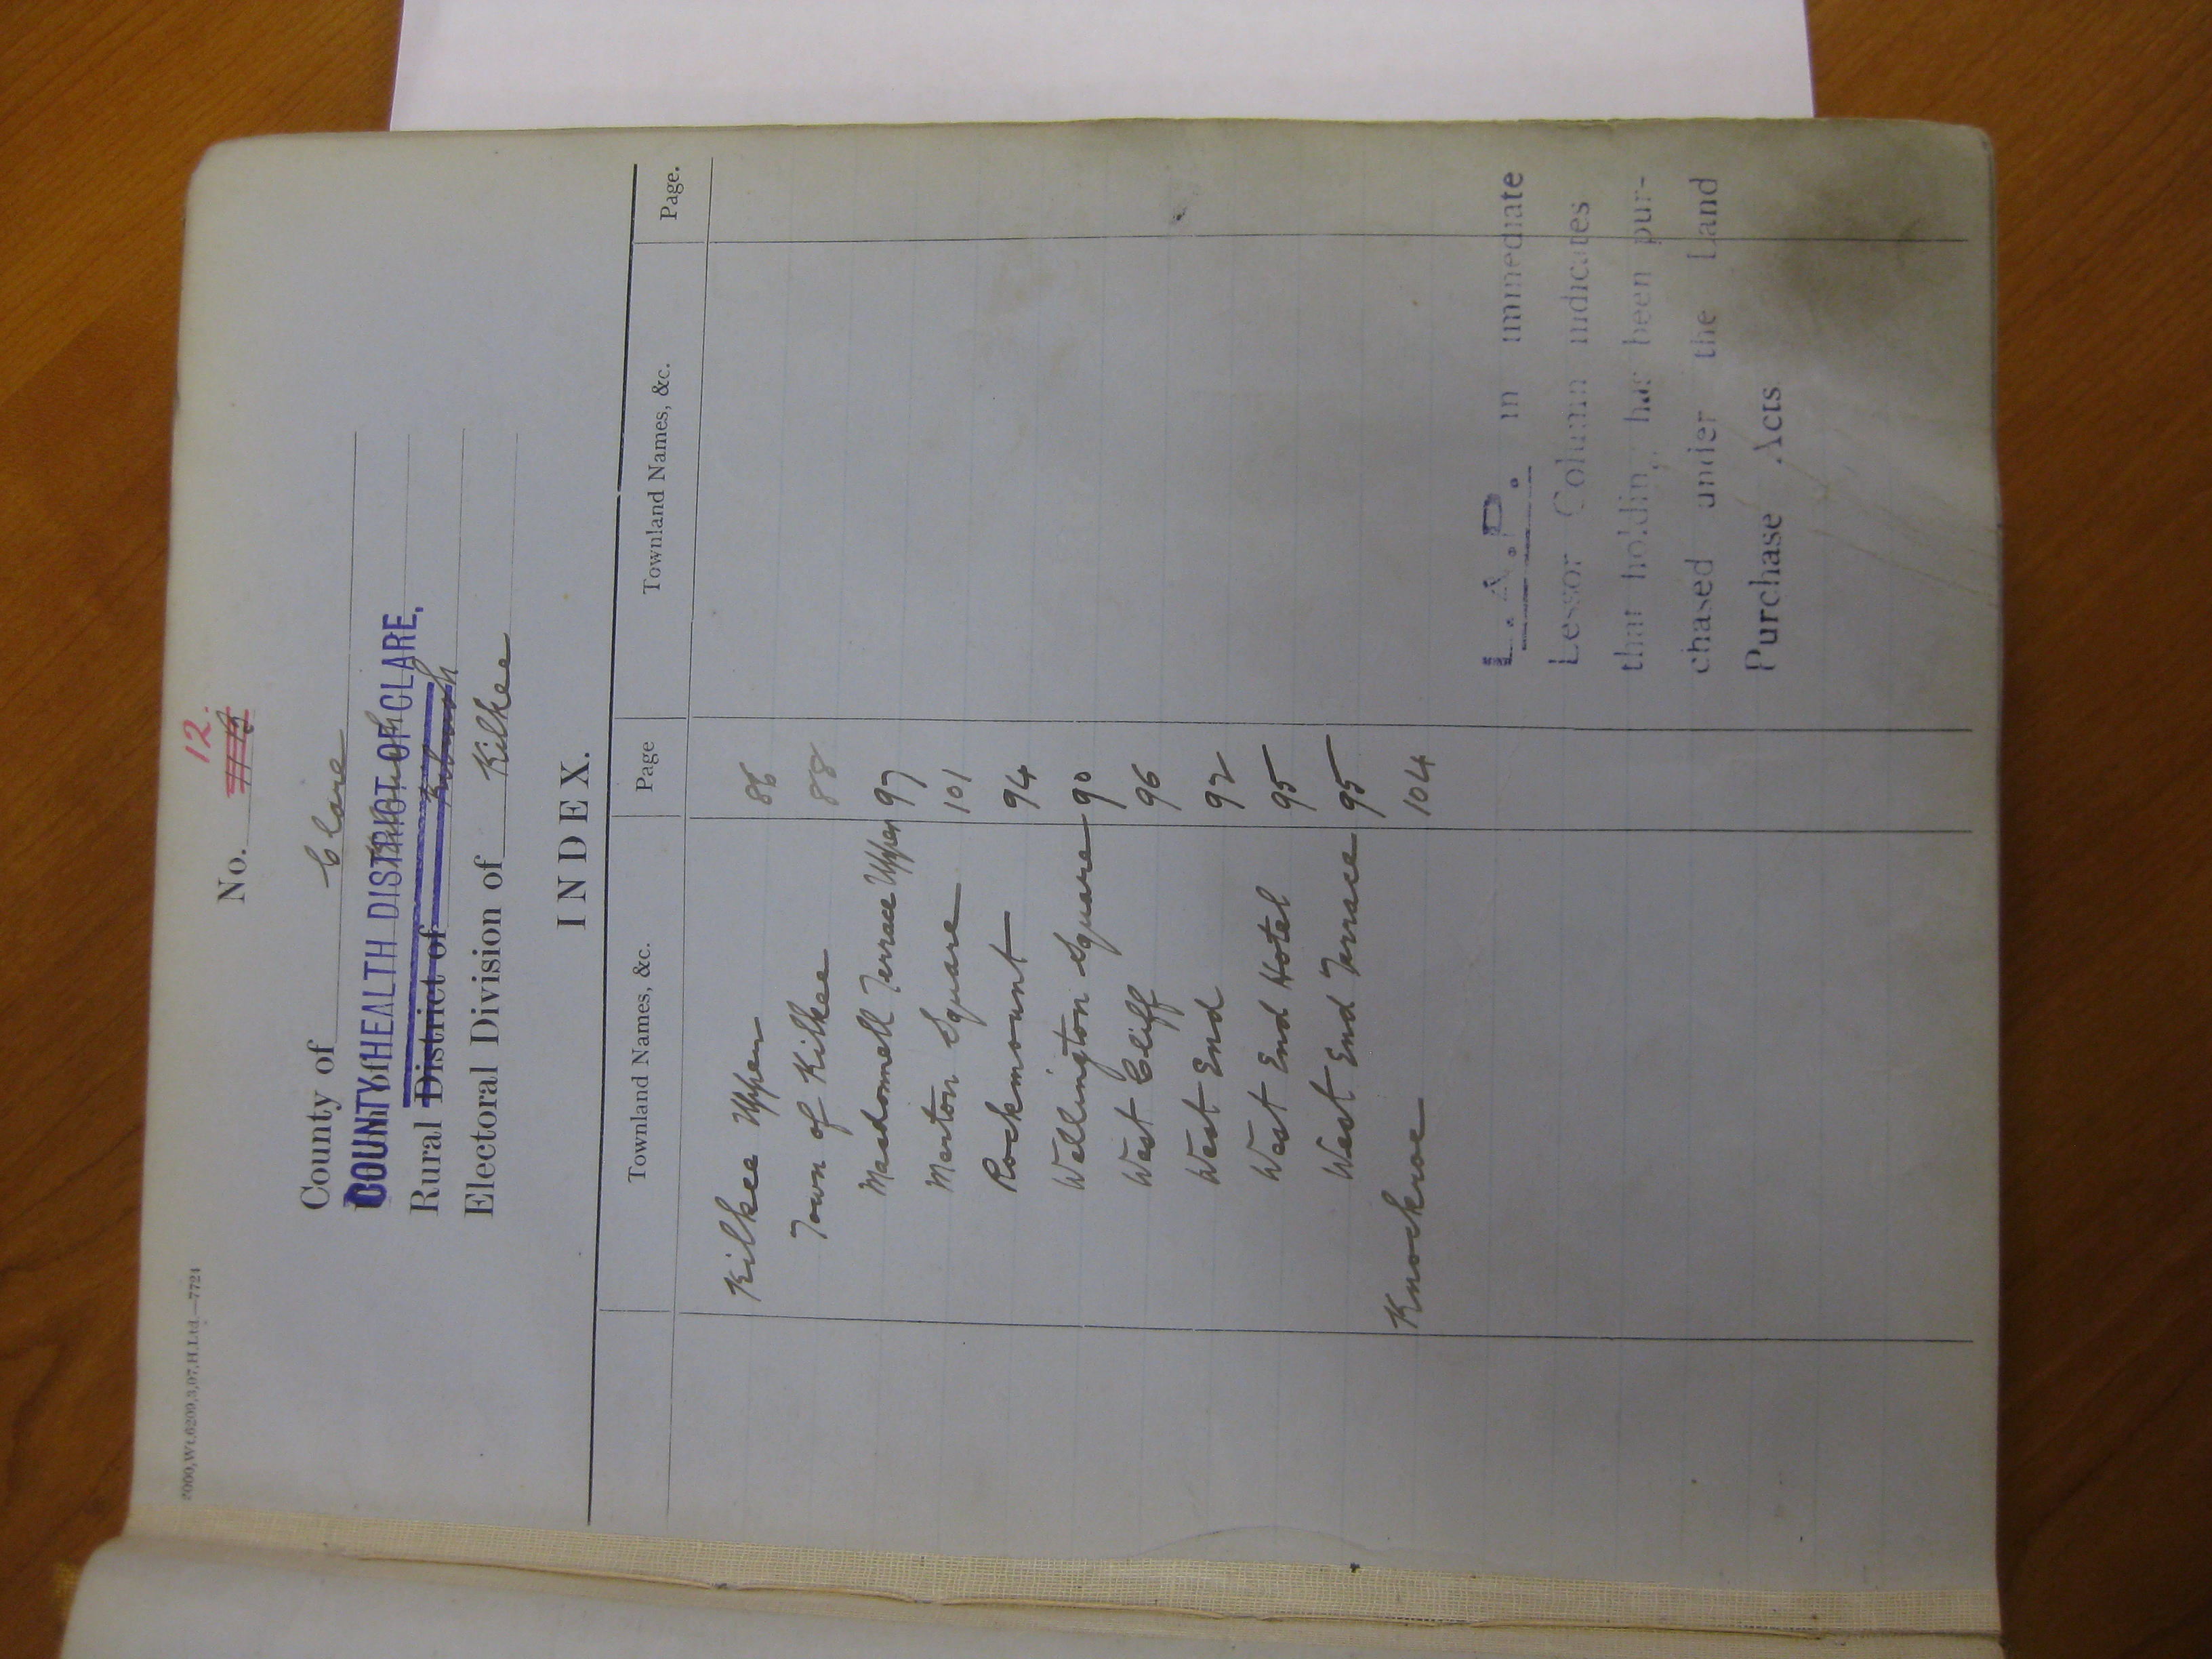 2000,Wt.6209,3,07,H.Ltd.—7724
No. 12.
County of Clare
COUNTY HEALTH DISTRICT OF CLARE.
Rural District of Kilrush
Electoral Division of Kilkee
INDEX.
Townland Names, &c. Page Townland Names, &c. Page.
Kilkee Upper 86
Town of Kilkee 88
Macdonnell Terrace Upper 97
Merton Square 101
Rockmount 94
Wellington Square 90
West Cliff 96
West End 92
West End Hotel 95
West End Terrace 95
Knockroe 104
L.A.P. in immediate
Lessor Column indicates
that holding has been pur-
chased under the Land
Purchase Acts